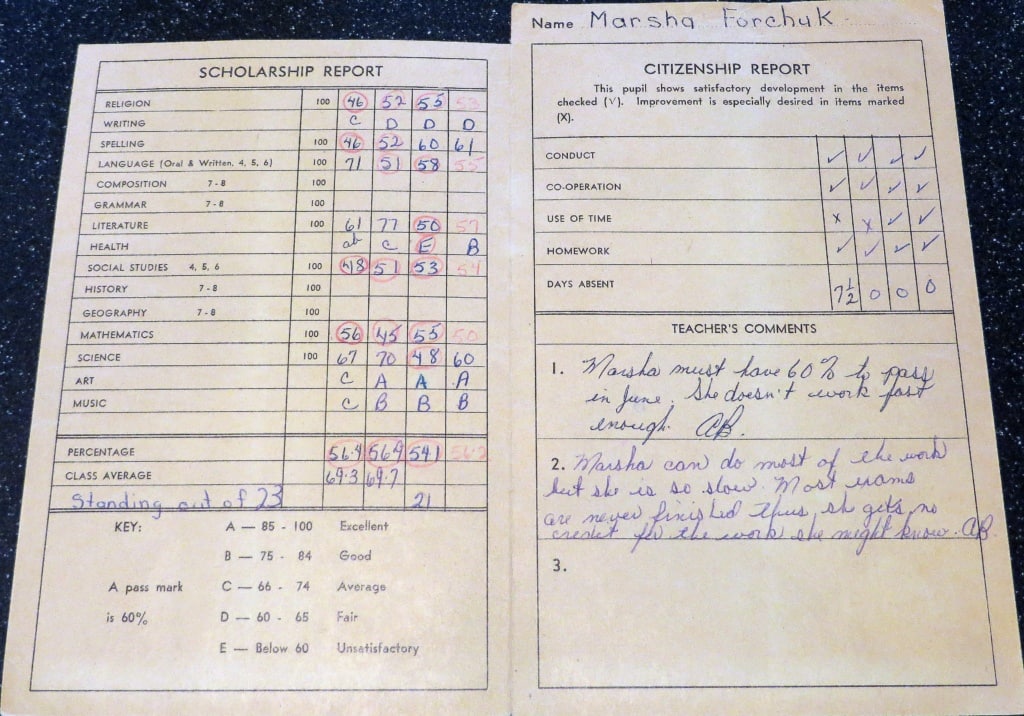 SCHOLARSHIP REPORT
RELIGION 100 46 52 55 53
WRITING C D D D
SPELLING 100 46 52 60 61
LANGUAGE (Oral & Written, 4, 5, 6) 100 71 51 58 55
COMPOSITION 7 - 8 100
GRAMMAR 7 - 8 100
LITERATURE 100 61 77 50 57
HEALTH ab C E B
SOCIAL STUDIES 4, 5, 6 100 48 51 53 54
HISTORY 7 - 8 100
GEOGRAPHY 7 - 8 100
MATHEMATICS 100 56 45 55 50
SCIENCE 100 67 70 48 60
ART C A A A
MUSIC C B B B
PERCENTAGE 56.4 56.9 54.1 56.2
CLASS AVERAGE 69.3 69.7
Standing out of 23 21
KEY: A — 85 - 100 Excellent
B — 75 - 84 Good
A pass mark C — 66 - 74 Average
is 60% D — 60 - 65 Fair
E — Below 60 Unsatisfactory
Name Marsha Forchuk
CITIZENSHIP REPORT
This pupil shows satisfactory development in the items
checked (√). Improvement is especially desired in items marked
(X).
CONDUCT ✓ ✓ ✓ ✓
CO-OPERATION ✓ ✓ ✓ ✓
USE OF TIME x x ✓ ✓
HOMEWORK ✓ ✓ ✓ ✓
DAYS ABSENT 7½ 0 0 0
TEACHER'S COMMENTS
1. Marsha must have 60% to pass
in June. She doesn't work fast
enough. AB.
2. Marsha can do most of the work
but she is so slow. Most exams
are never finished thus, sh gets no
credit for the work she might know. AB.
3.